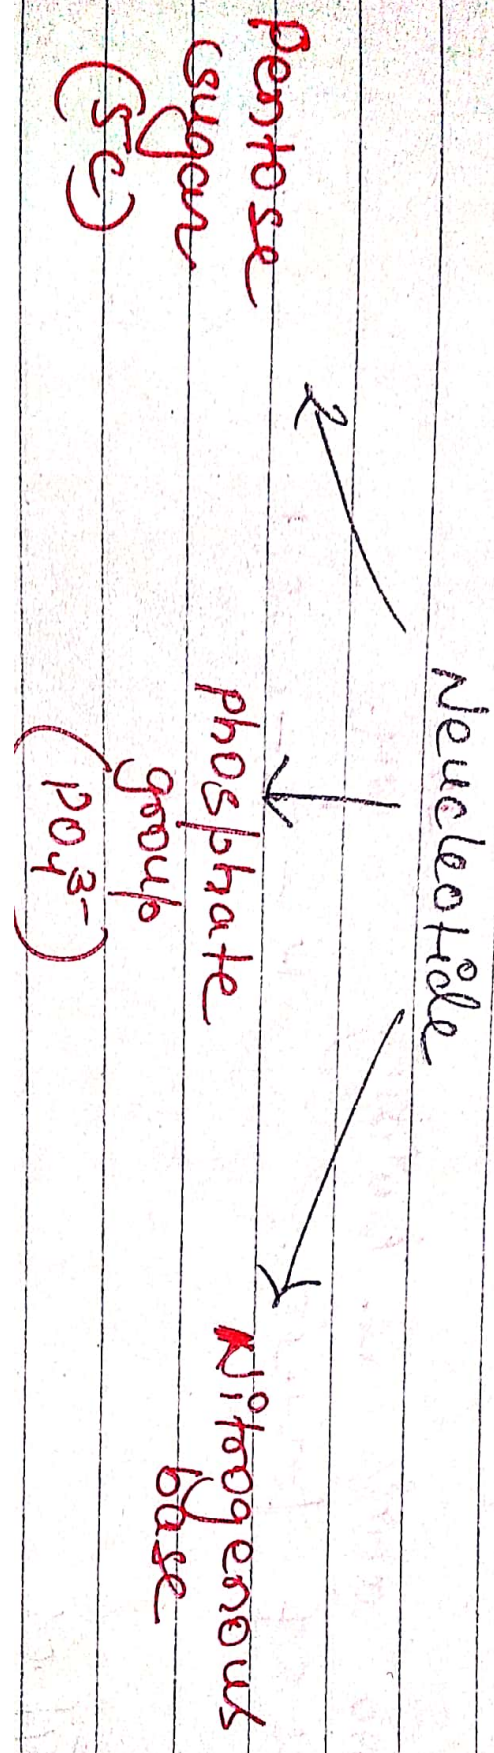 Neucleotide
Pentose
sugar
(5C)
phosphate
group
(PO₄³⁻)
Nitrogenous
base